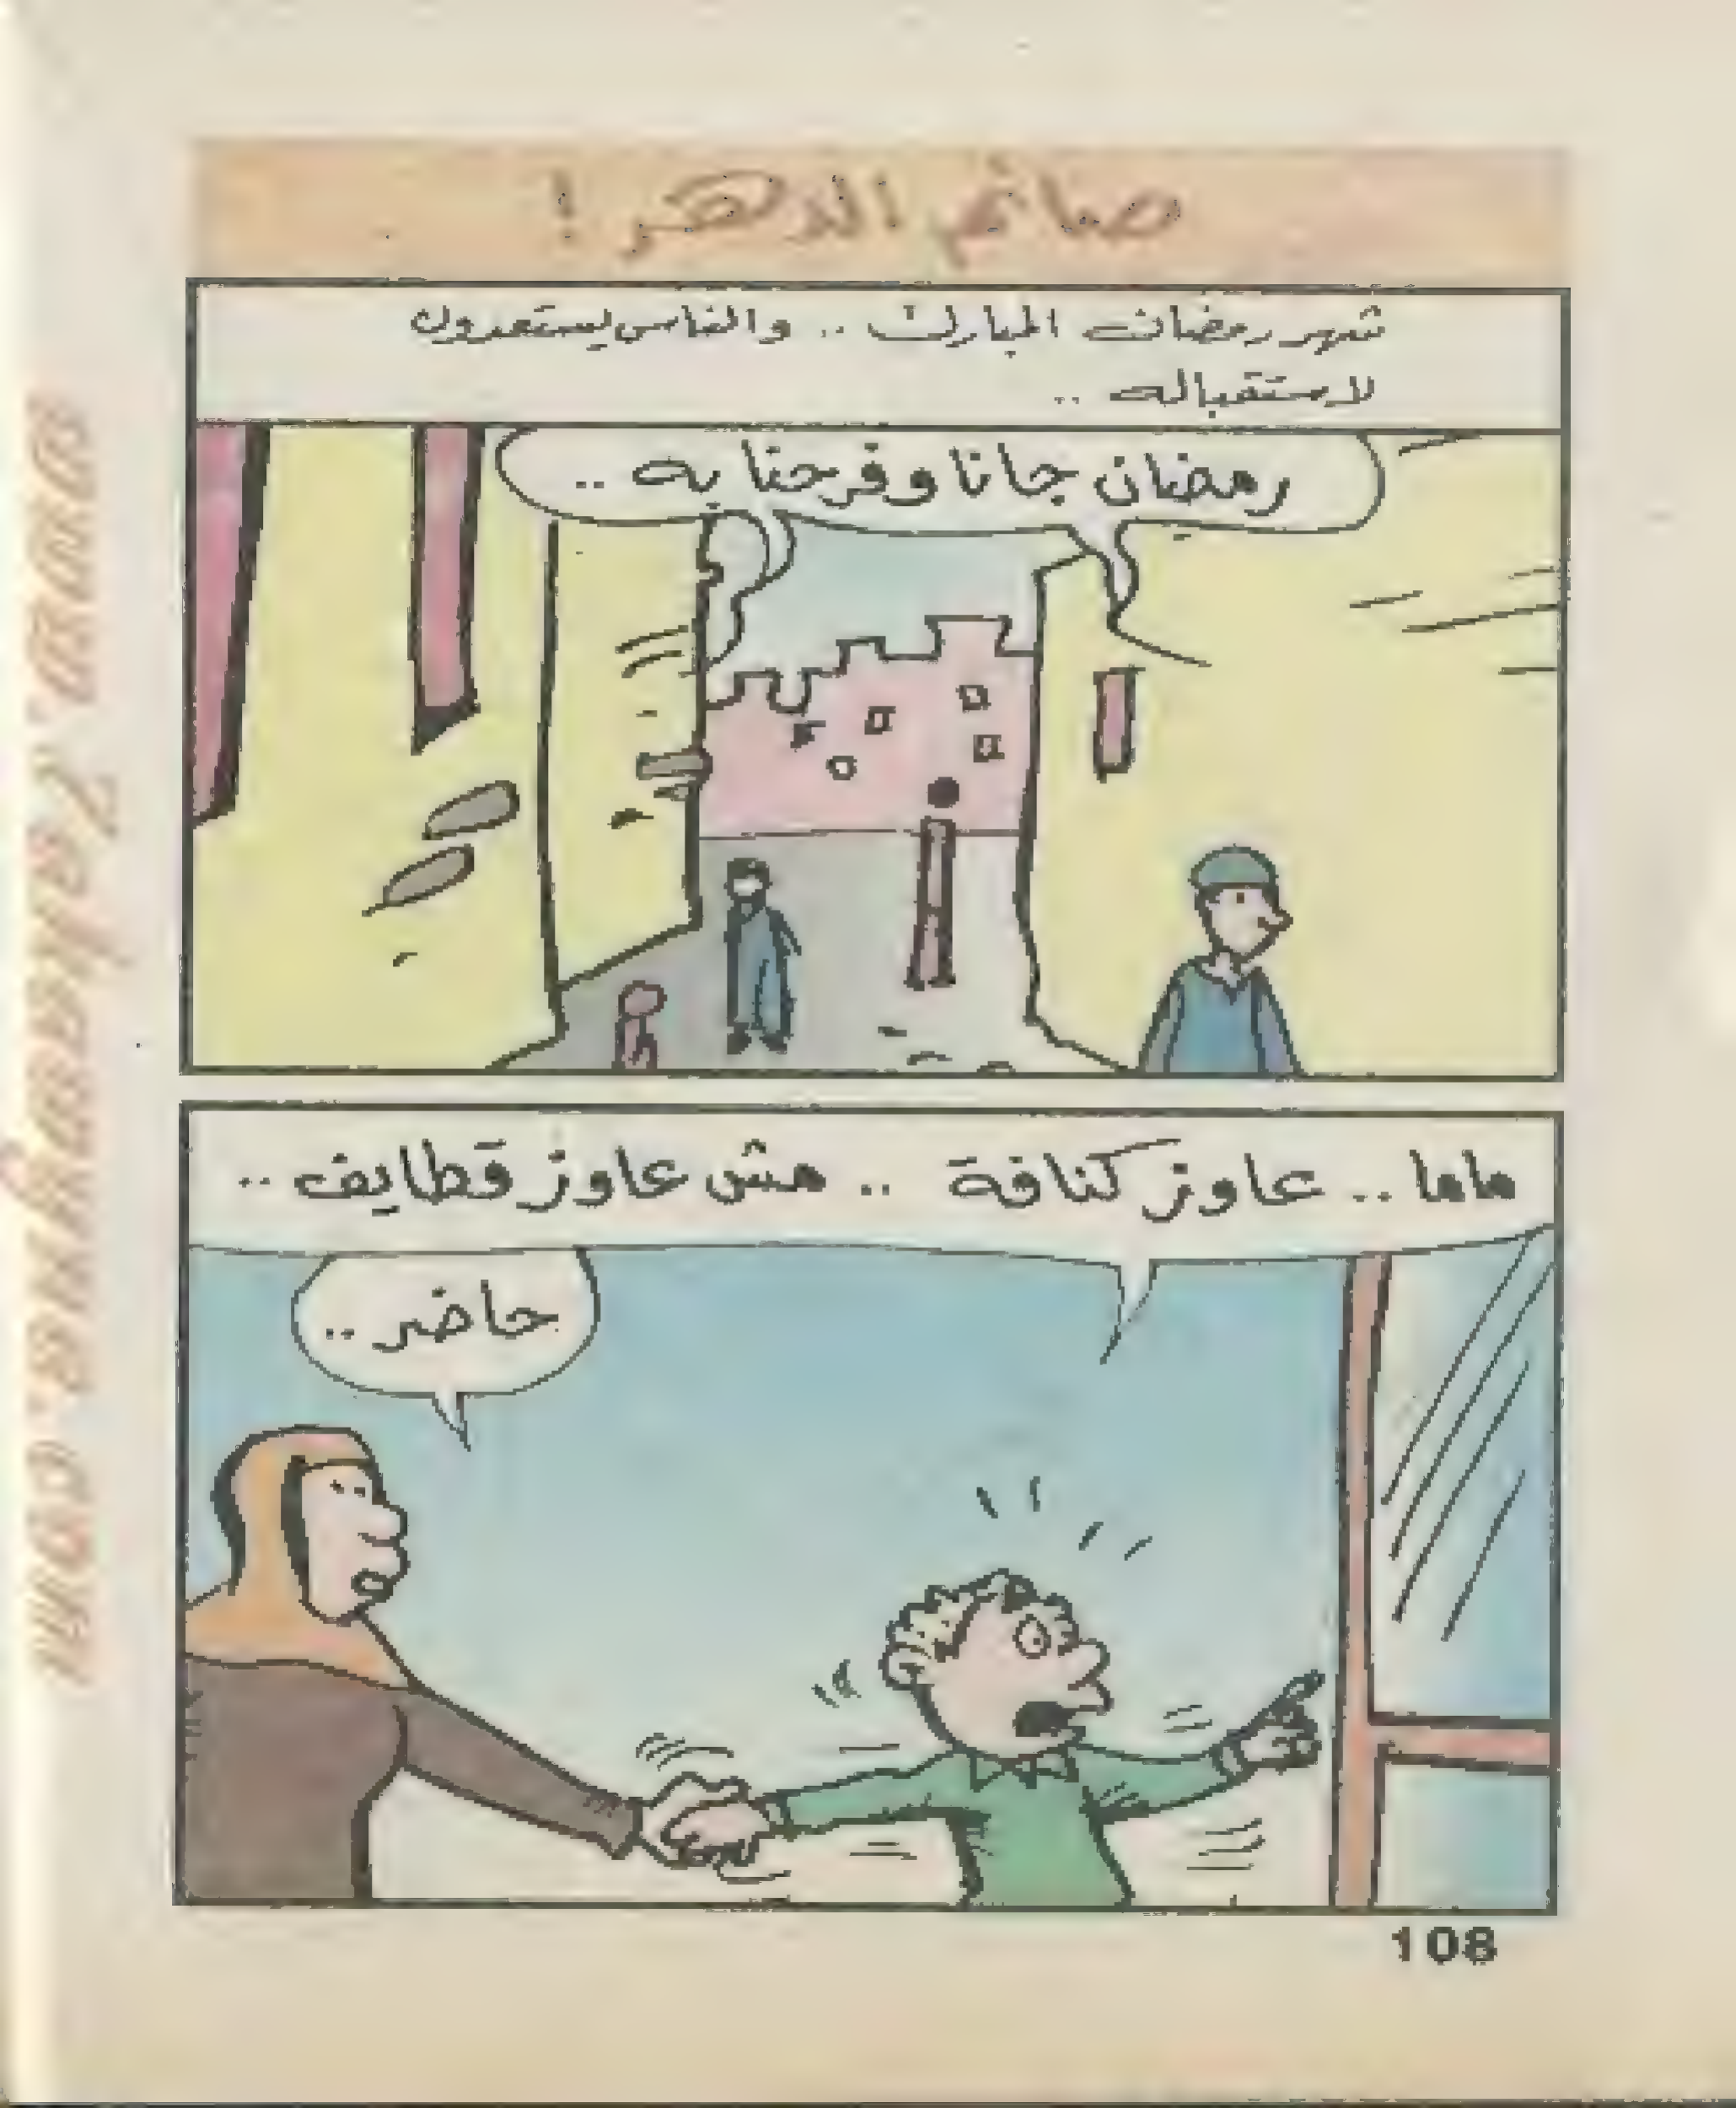 صائم الدهر !
شهر رمضان المبارك .. والناس يستعدون
لاستقباله ..
رمضان جانا وفرحنا به ..
ماما .. عاوز كنافة .. مش عاوز قطايف ..
حاضر ..
108
www.dvd4arab.com